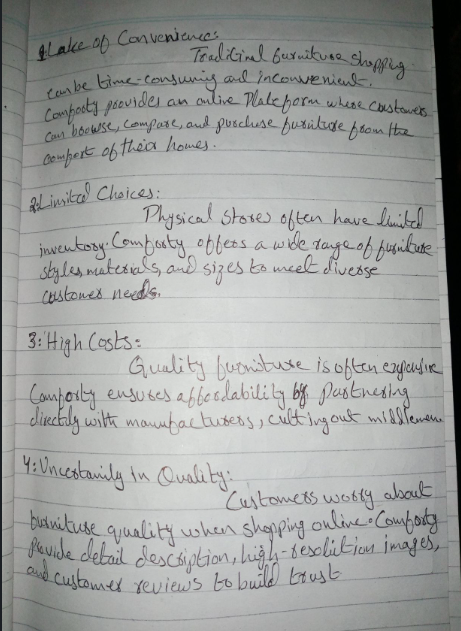 1: Lake of Convenience:
Traditinal furniture shopping
can be time-consuming and inconvenient.
Comforty provides an online Plateform where customers
can browse, compare, and purchase furniture from the
comfort of their homes.
2: Limited Choices:
Physical stores often have limited
inventory. Comforty offers a wide range of furniture
styles, materials, and sizes to meet diverse
customer needs.
3: High Costs:
Quality furniture is often expensive
Comforty ensures affordability by Partnering
directly with manufacturers, cutting out middlemen
4: Uncertainily In Quality:
Customers worry about
furniture quality when shopping online. Comforty
Provide detail description, high-resolution images,
and customer reviews to build trust